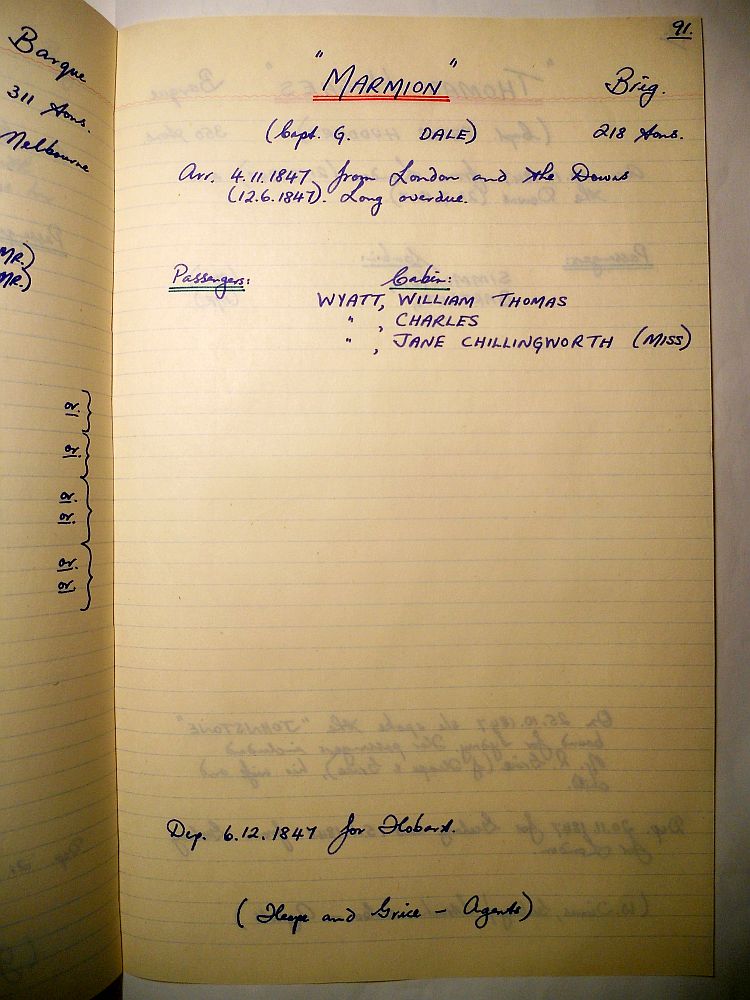 Barque
311 tons.
Melbourne
MR.)
MR.)
91.
"MARMION" Brig.
(Capt. G. DALE) 218 tons.
Arr. 4.11.1847 from London and the Downs
(12.6.1847). Long overdue.
Passengers: Cabin:
WYATT, WILLIAM THOMAS
" , CHARLES
" , JANE CHILLINGWORTH (MISS)
Dep. 6.12.1847 for Hobart.
(Heape and Grice - Agents)